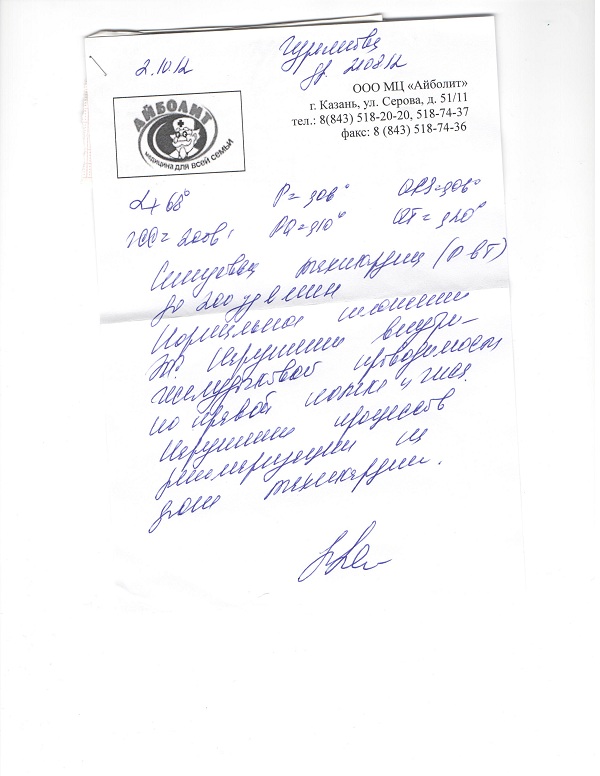 2.10.12
др. 210812
АЙБОЛИТ
медицина для всей семьи
ООО МЦ «Айболит»
г. Казань, ул. Серова, д. 51/11
тел.: 8(843) 518-20-20, 518-74-37
факс: 8 (843) 518-74-36
68° P = 0,06" QRS=0,06"
ЧСС= 200 в 1' PQ=0,10" QT = 0,20"
Синусовая тахикардия (
до 200 уд в мин
Нормальное положение
Нарушение внутри-
желудочковой проводимости
по правой ножке п. Гиса.
Нарушение процессов
реполяризации на
фоне тахикардии.